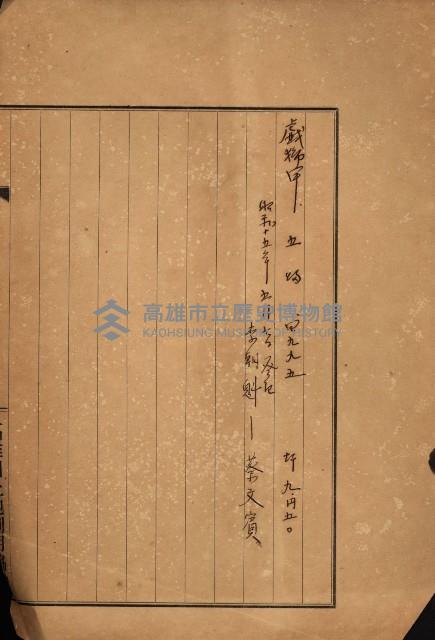 戲獅甲、五 場 、四九九五 坪 九、円五〇
昭和十五年五月 登記
李朝魁 — 蔡文賓
高雄市立歷史博物館
KAOHSIUNG MUSEUM OF HISTORY